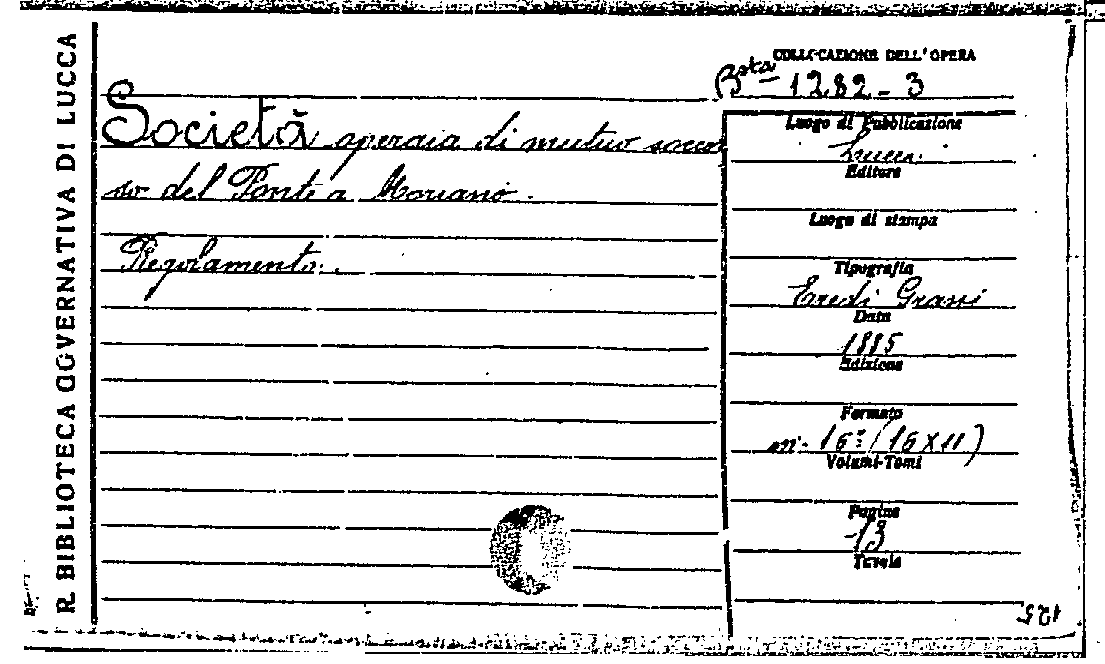 R. BIBLIOTECA GOVERNATIVA DI LUCCA
COLLOCAZIONE DELL'OPERA
Bsta - 1282 - 3
Società operaia di mutuo soccor
so del Ponte a Moriano.
Regolamento.
Luogo di Pubblicazione
Lucca
Editore
Luogo di stampa
Tipografia
Eredi Grassi
Data
1885
Edizione
Formato
in- 16º (16 x 11)
Volumi-Tomi
Pagine
13
Tavole
125